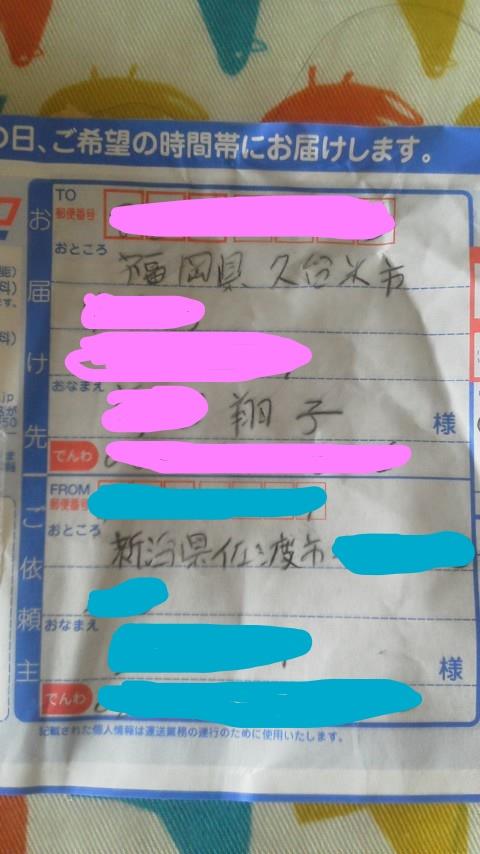 の日、ご希望の時間帯にお届けします。
お届け先
TO
郵便番号
おところ
福岡県 久留米市
おなまえ
翔子
様
でんわ
ご依頼主
FROM
郵便番号
おところ
新潟県佐渡市
おなまえ
様
でんわ
記載された個人情報は運送業務の遂行のために使用いたします。